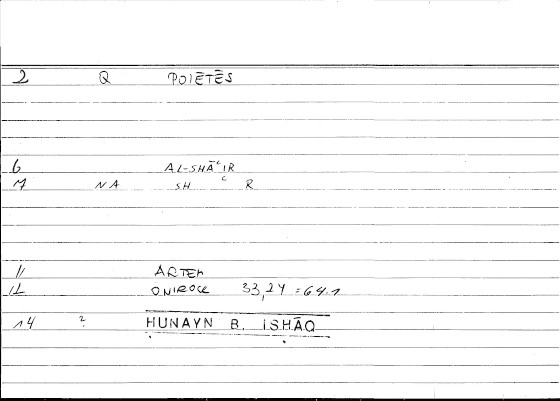 2 Q POIĒTĒS
6 AL-SHĀʿIR
M NA SH ʿ R
11 ARTEM
12 ONIROCR 33,24 = 64.1
14 ? ḤUNAYN B. ISḤĀQ